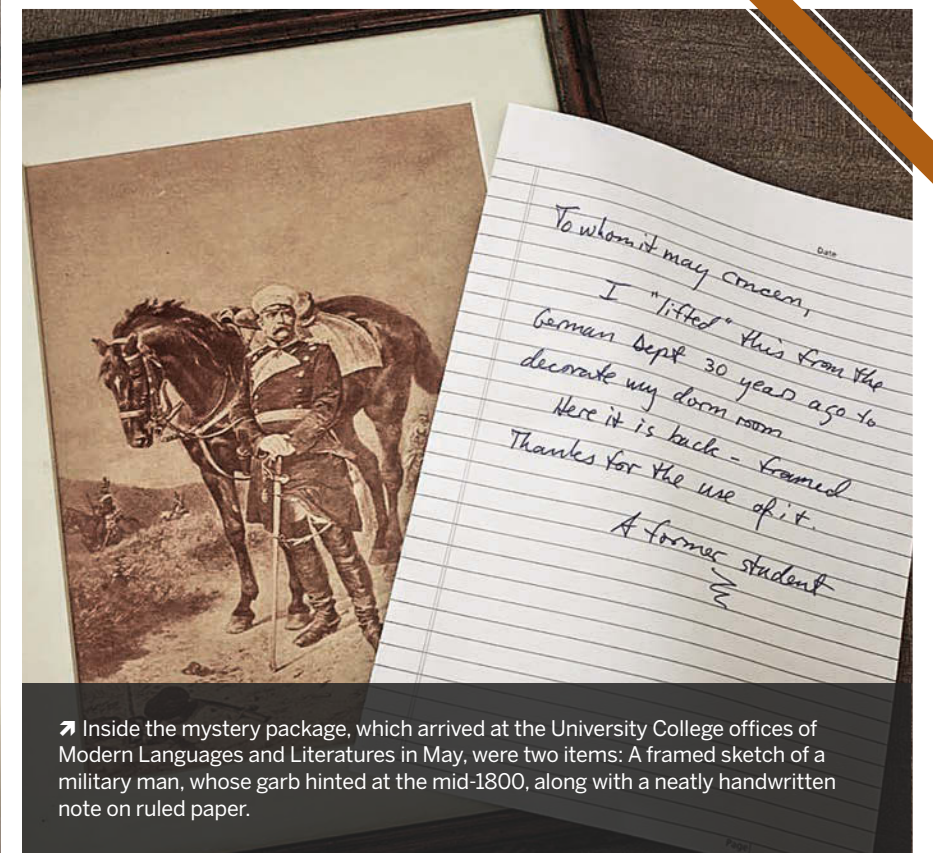 Date
To whom it may concen,
I "lifted" this from the
German Dept 30 years ago to
decorate my dorm room.
Here it is back - framed
Thanks for the use of it.
A former student
Page
↗ Inside the mystery package, which arrived at the University College offices of
Modern Languages and Literatures in May, were two items: A framed sketch of a
military man, whose garb hinted at the mid-1800, along with a neatly handwritten
note on ruled paper.